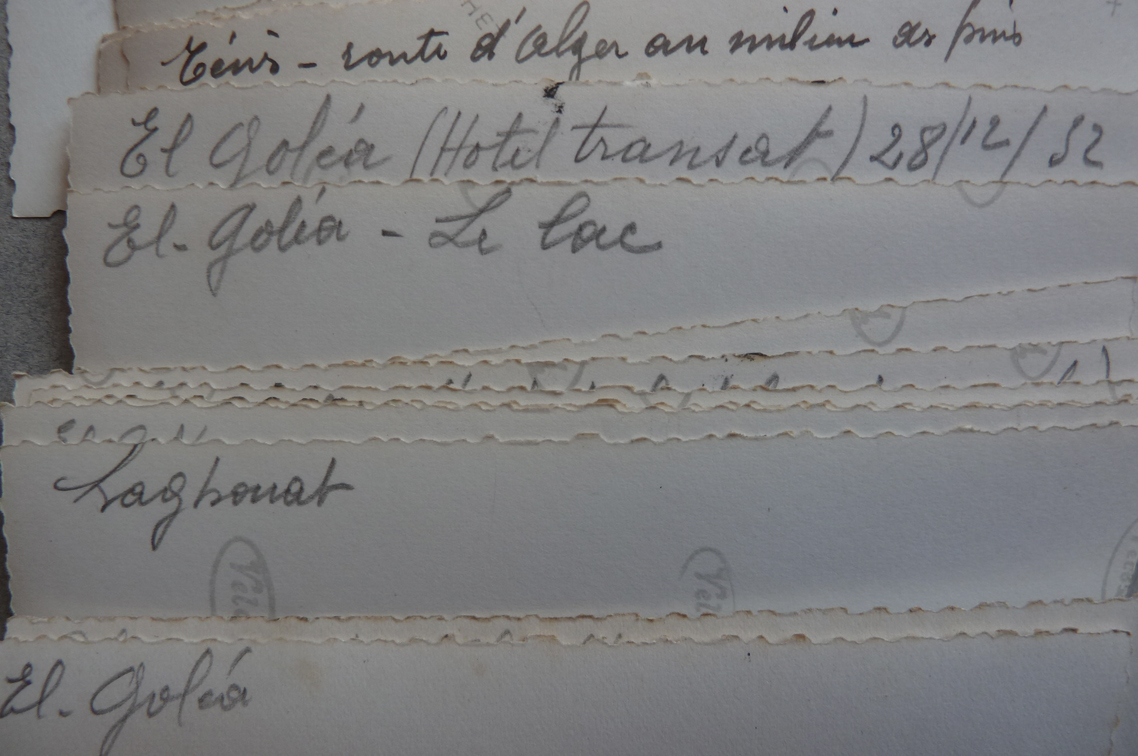 Ténès - route d'Alger au milieu des pins
El Goléa (Hotel transat) 28/12/52
El-Goléa - Le lac
Laghouat
Vél
Vél
El-Goléa